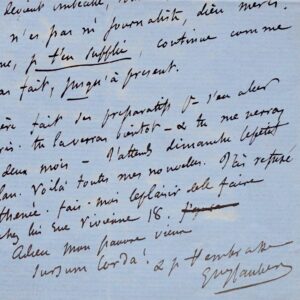 devient imbécile,
n'es pas ni journaliste, dieu merci.
je t'en supplie, continue comme
as fait, jusqu'à présent.
fait des préparatifs p. s'en aller
tu la verras bientôt - & tu me verras
deux mois - J'attends dimanche le petit
Voilà toutes mes nouvelles. J'ai refusé
fais-moi le plaisir de le faire
chez lui Rue Vivienne 18.
Adieu mon pauvre vieux
Sursum Corda! & je t'embrasse
GveFlaubert